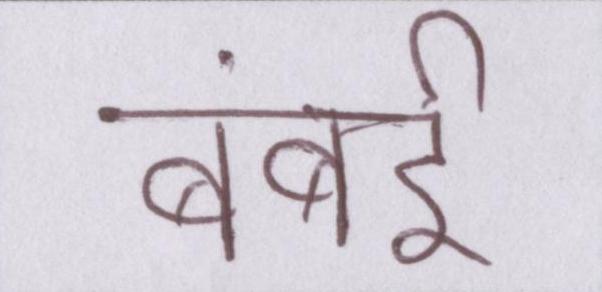 बंबई